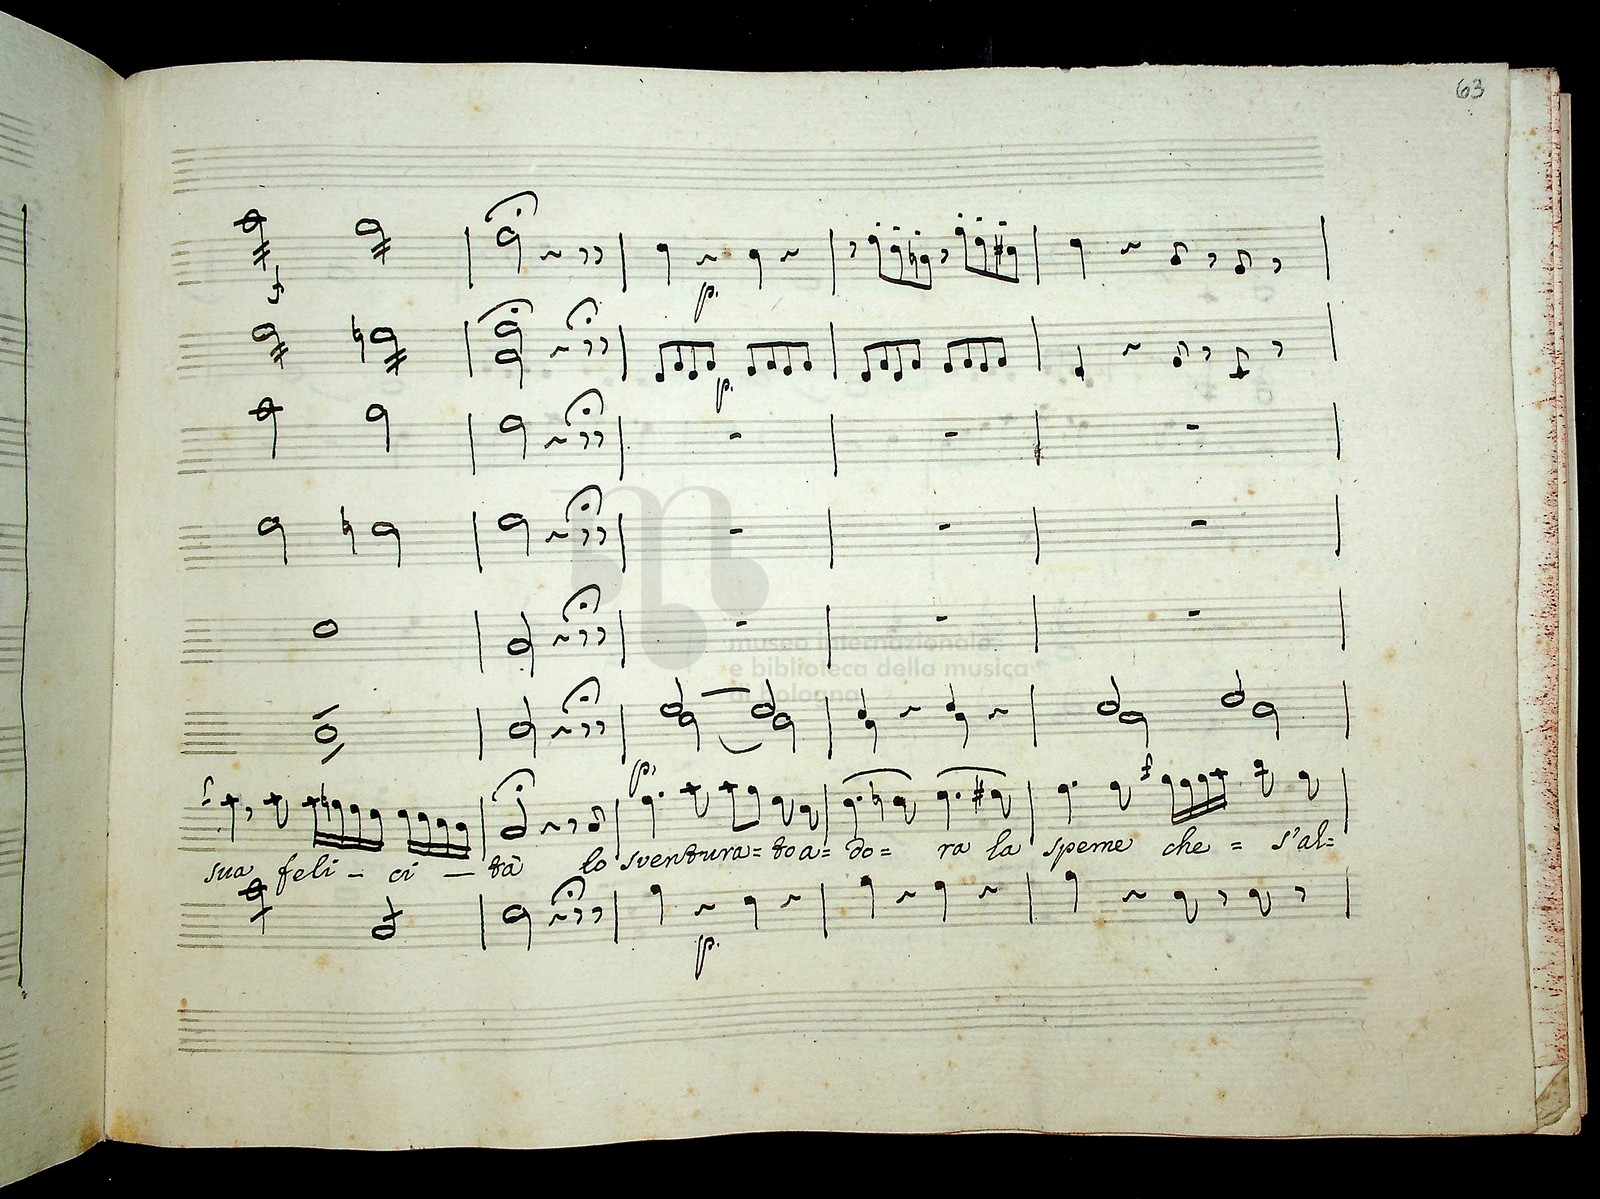 63
f
p.
p.
museo internazionale
e biblioteca della musica
di bologna
p.
f
f
sua feli - ci - tà lo sventura= to a= do= ra la speme che = s'al=
p.